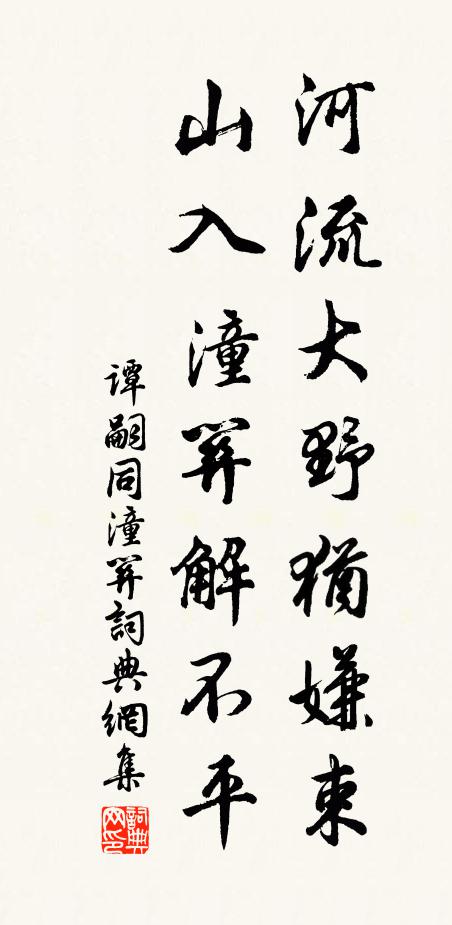 河流大野猶嫌束
山入潼關解不平
譚嗣同潼關詞典網集
詞典网印